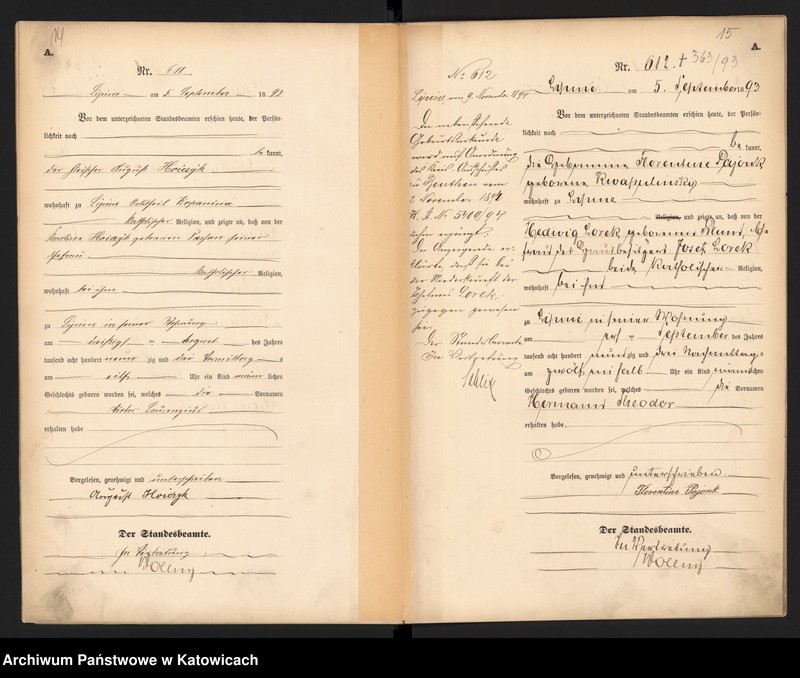 14
A.
Nr. 611
Lipine am 5. September 1893
Vor dem unterzeichneten Standesbeamten erschien heute, der Persön-
lichkeit nach
be kannt,
der Häusler August Hoiczyk
wohnhaft zu Lipine Ortstheil Kopanina
katholischer Religion, und zeigte an, daß von der
Hoiczyk geborenen seiner
Ehefrau
katholischer Religion,
wohnhaft bei ihm
zu Lipine in seiner Wohnung
am dreißigsten August des Jahres
tausend acht hundert neun zig und drei Vormittags
um elf Uhr ein Kind männlichen
Geschlechts geboren worden sei, welches die Vornamen
Victor Laurenzius
erhalten habe
Vorgelesen, genehmigt und unterschrieben
August Hoiczyk
Der Standesbeamte.
In Vertretung
Wolny
No 612
Lipine, am 9. November 1894
Die nebenstehende
Geburtsurkunde
wird auf Anordnung
des
zu Beuthen vom
2. November 1894
dahin ergänzt:
Die Anzeigende er-
klärte, daß sie bei
der Niederkunft der
Lorek
zugegen gewesen
sei.
Der Standesbeamte
In Vertretung
15
A.
Nr. 612. + 363/93
Lipine am 5. September 1893
Vor dem unterzeichneten Standesbeamten erschien heute, der Persön-
lichkeit nach
be kannt,
die Hebamme Florentine Pajonk
geborene
wohnhaft zu Lipine
Religion, und zeigte an, daß von der
Hedwig Lorek geborenen Ehe-
frau des Josef Lorek
beide katholischer Religion,
wohnhaft bei ihm
zu Lipine in seiner Wohnung
am September des Jahres
tausend acht hundert neunzig und drei Nachmittags
um zwölf ein halb Uhr ein Kind männlichen
Geschlechts geboren worden sei, welches die Vornamen
Hermann Theodor
erhalten habe.
Vorgelesen, genehmigt und unterschrieben
Florentine Pajonk
Der Standesbeamte.
In Vertretung
Wolny
Archiwum Państwowe w Katowicach